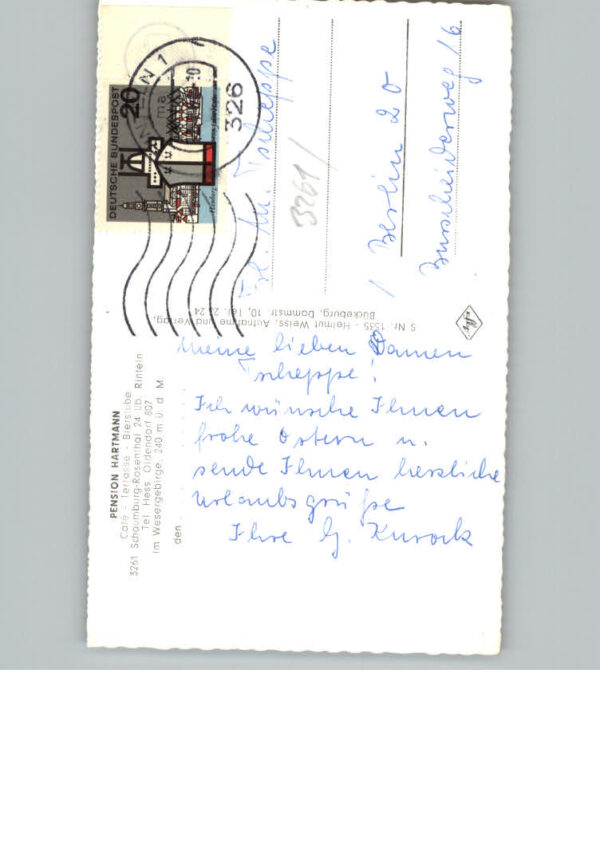 PENSION HARTMANN
Café - Terrasse - Bierstube
3261 Schaumburg-Rosenthal 24 üb. Rinteln
Tel. Hess. Oldendorf 807
Im Wesergebirge, 240 m ü. d. M.
den
Meine lieben Damen
Tscheppe!
Ich wünsche Ihnen
frohe Ostern u.
sende Ihnen herzliche
Urlaubsgrüße
Ihre G.
S Nr. 1535 - Helmut Weiss, Aufnahme und Verlag,
Bückeburg, Dammstr. 10, Tel. 23 24
DEUTSCHE BUNDESPOST
20
326
Tscheppe
3261/
1 Berlin 20